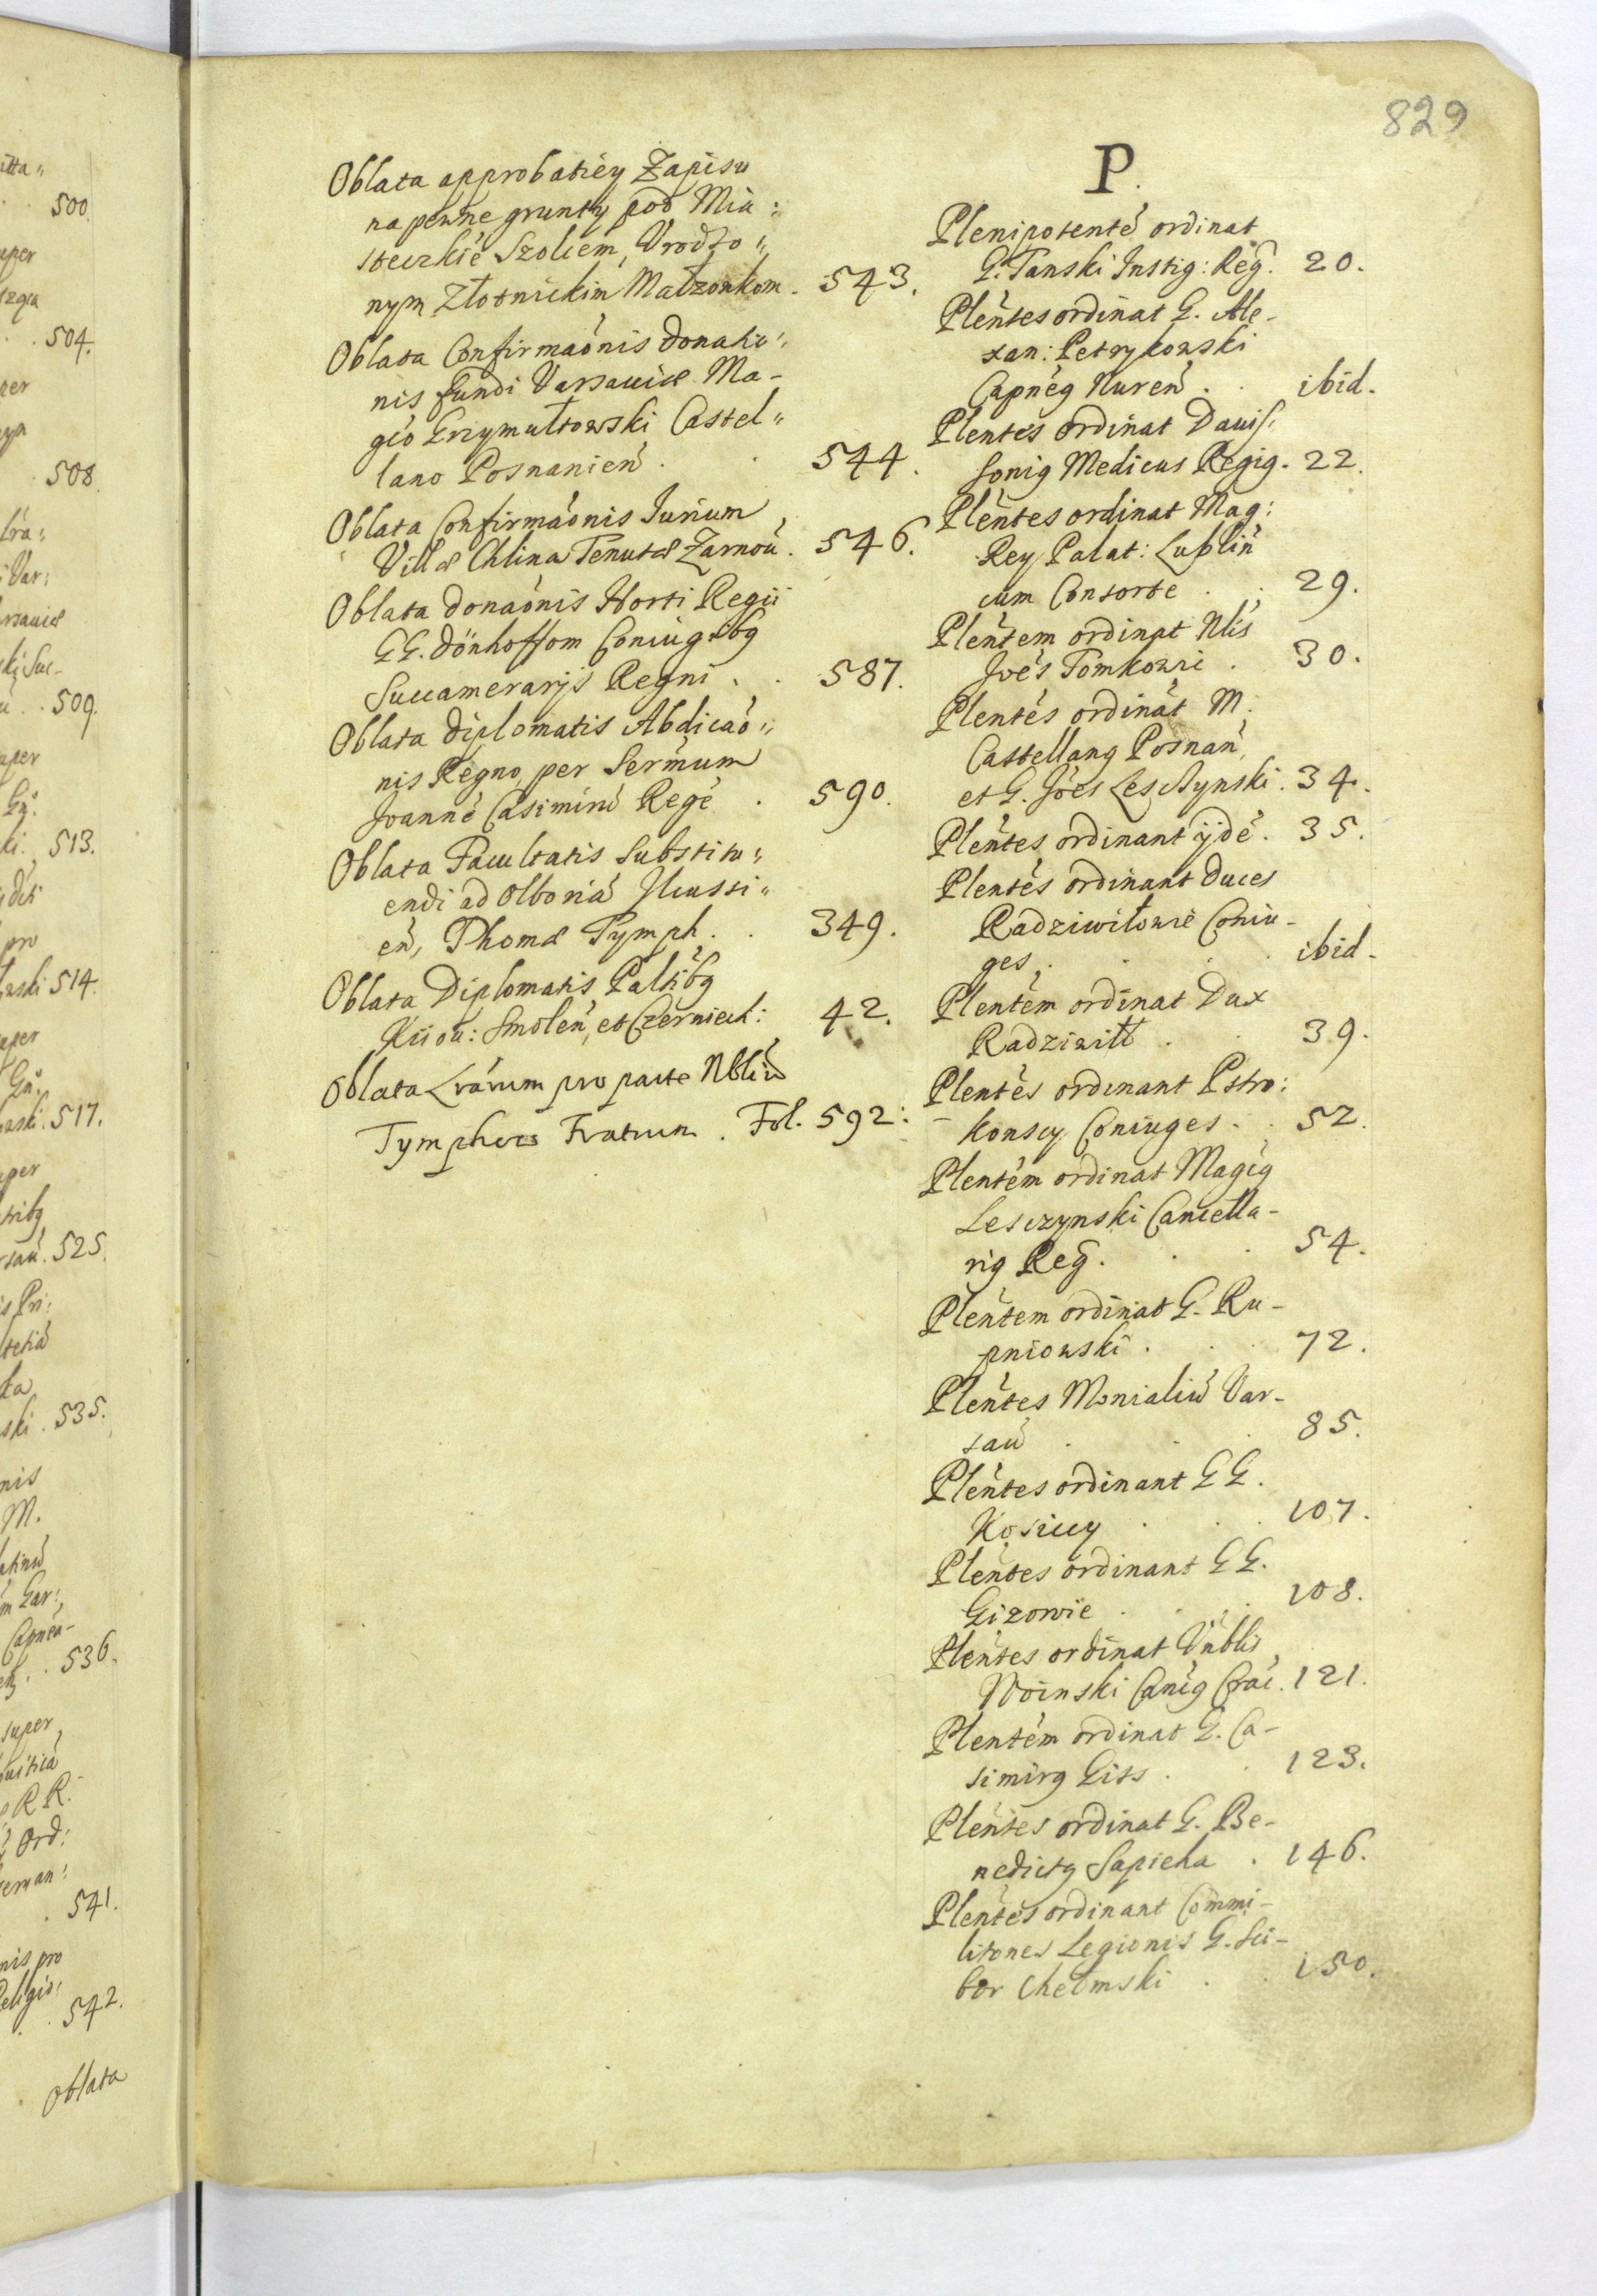 829
Oblata approbatiey Zapisu
na pewne grunty pod Mia:
steczkiē Szolcem, Vrodzo„
nym Złotnickim Małzonkom. 543.
Oblata Confirmaōnis donatio„
nis fundi Varsauiæ Ma-
gcō Grzymułtowski Castel„
lano Posnanień . . 544.
Oblata Confirmaōnis Iurium
Villæ Chlina Tenutæ Zarnoū. 546.
Oblata donaōnis Horti Regii
GG. dönhoffom Coniugibg
Succamerarijs Regni . . 587.
Oblata diplomatis Abdicaō„
nis Regno per Serm̄um
Joannē Casimirū Regē . 590.
Oblata Facultatis Substitu„
endi ad Olborā Ilcussi„
eń, Thomæ Tymph . . 349.
Oblata Diplomatis Paltibg
Kiiou: Smoleń, et Czerniech: 42.
Oblata Lrārum pro parte Nbliū
Tymphois Fratrum . Fol. 592:
P.
Plenipotentē ordinat
G. Tanski Instig: Reg̃. 20.
Pleñtes ordinat G. Ale-
xan: Petrykowski
Capneg Nureń . . ibid.
Plentēs ordinat Dauis,
sonig Medicus Regig. 22.
Plēntes ordinat Mag:
Rey Palat: Lubliń
cum Consorte . . 29.
Pleñtem ordinat Nlis
Joēs Tomkowic . 30.
Plentēs ordinat M.
Castellang Posnań,
et G. Joēs Lesczynski. 34.
Pleñtes ordinant ijdē. 35.
Plentēs ordinant duces
Radziwiłowie Coniu-
ges . . . ibid.
Plentēm ordinat Dux
Radziwiłł . . 39.
Plentēs ordinant Pstro:
konscy Coniuges . . 52.
Plentēm ordinat Magcg
Lesczynski Cancella-
rig Reg̃ . . . 54.
Pleñtem ordinat G. Ru-
pniowski . . . 72.
Pleñtes Monialiū Var-
saū . . . 85.
Pleñtes ordinant GG.
Kosiccy . . . 107.
Pleñtes ordinant GG.
Gizowie . . . 108.
Pleñtes ordinat Vñblis
Woinski Cancg Crac. 121.
Plentēm ordinat G. Ca-
simirg Giss . . 123.
Pleñtes ordinat G. Be-
nedictg Sapieha . 146.
Plentēs ordinant Commi-
litones Legionis G. Sci-
bor Chełmski . . 150.